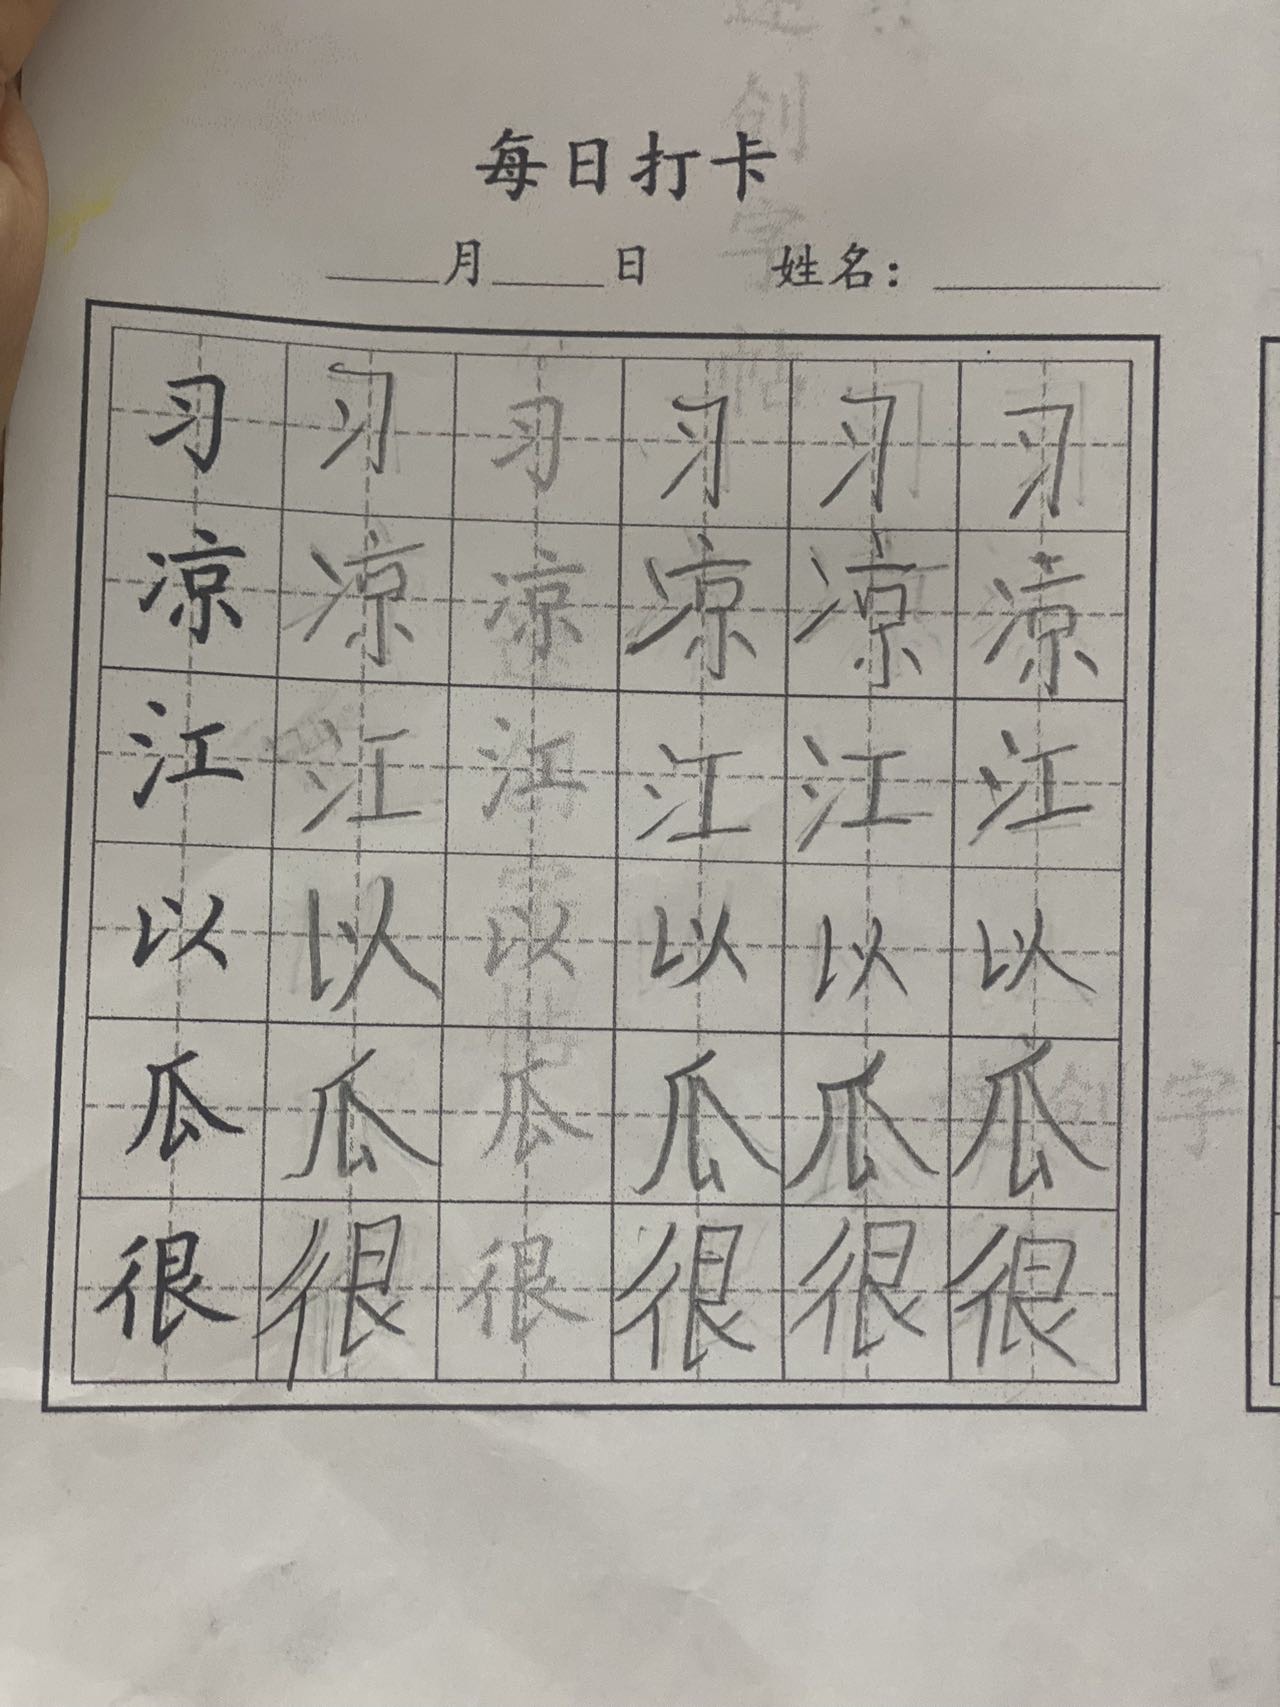 每日打卡
____月____日 姓名：________
习 习 习 习 习 习
凉 凉 凉 凉 凉 凉
江 江 江 江 江 江
以 以 以 以 以 以
瓜 瓜 瓜 瓜 瓜 瓜
很 很 很 很 很 很